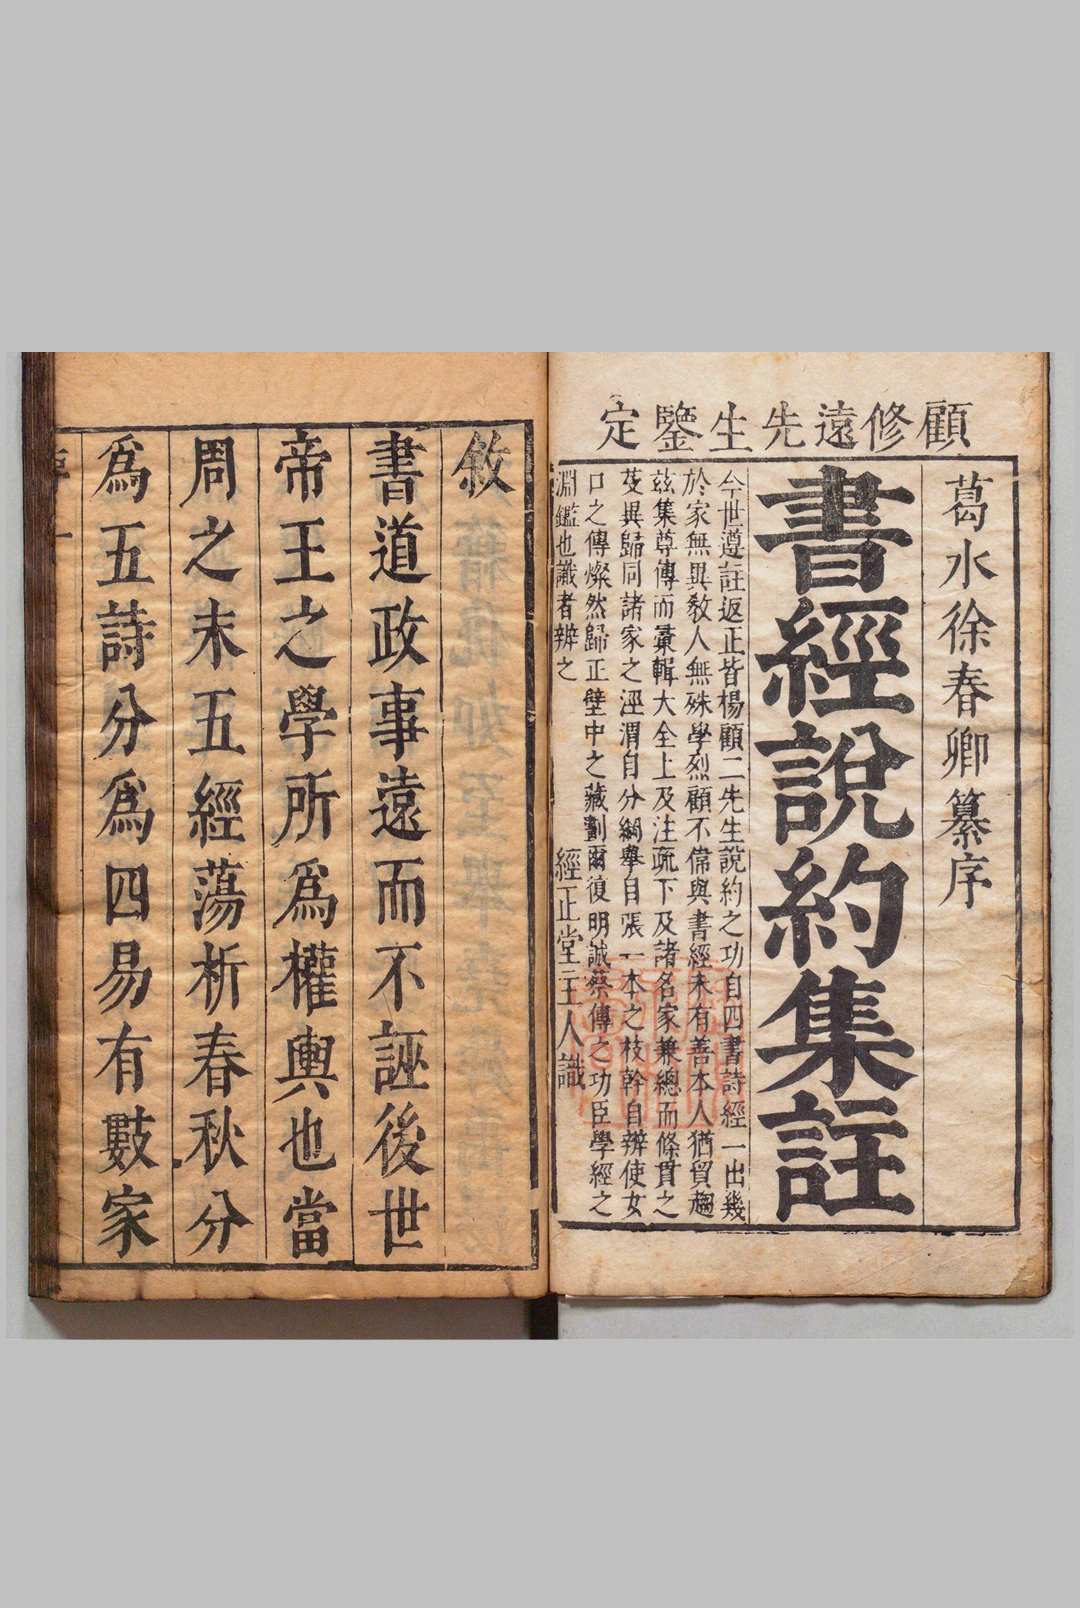 顧修遠先生鑒定
葛水徐春卿纂序
書經說約集註
今世遵註返正皆楊顧二先生說約之功自四書詩經一出幾
於家無異敎人無殊學烈顧不偉與書經未有善本人猶貿趨
兹集尊傳而彙輯大全上及注疏下及諸名家兼總而條貫之
芟異歸同諸家之涇渭自分綱舉目張一本之枝幹自辨使女
口之傳燦然歸正壁中之藏劃爾復明誠蔡傳之功臣學經之
淵鑑也識者辨之
經正堂主人識
敘
書道政事遠而不誣後世
帝王之學所爲權輿也當
周之末五經蕩析春秋分
爲五詩分爲四易有數家